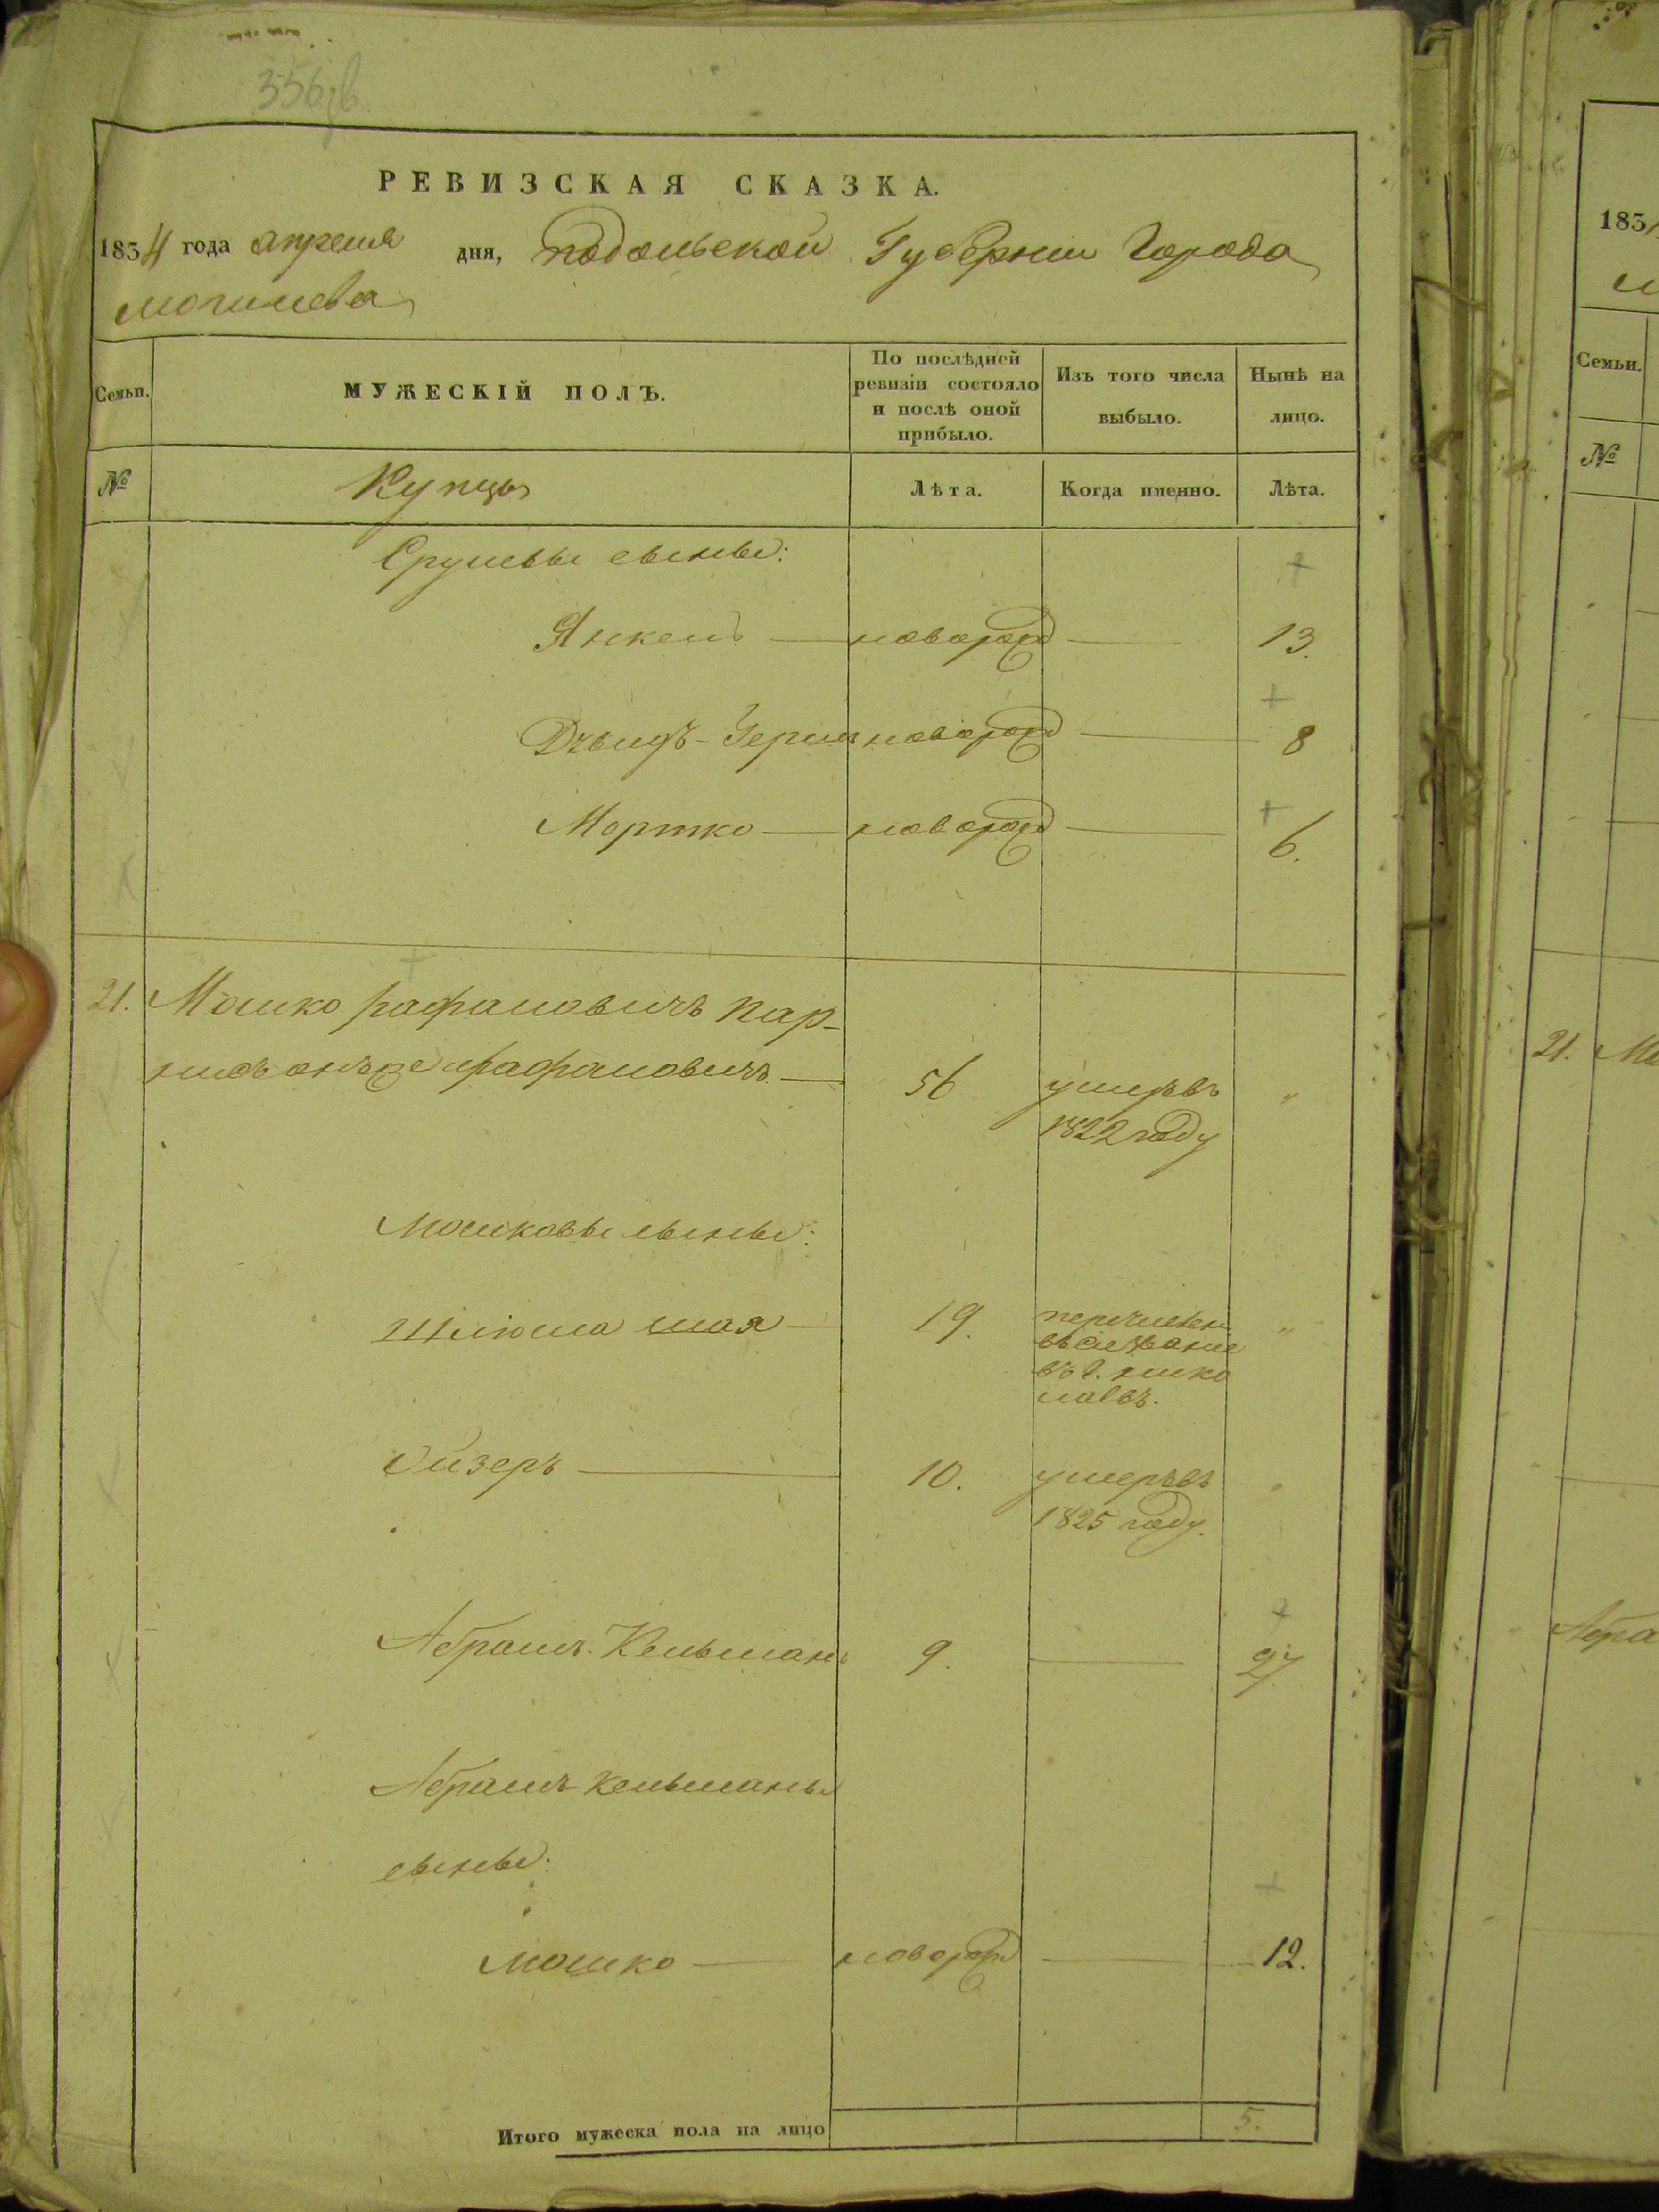 356
РЕВИЗСКАЯ СКАЗКА.
1834 года апреля дня, Подольской Губернии Города
Могилева
Семьи.
МУЖЕСКІЙ ПОЛЪ.
По послѣдней ревизіи состояло и послѣ оной прибыло.
Изъ того числа выбыло.
Нынѣ на лицо.
№
Купцы
Лѣта.
Когда именно.
Лѣта.
Срулевы сыны:
Янкель — новорожд — 13.
Дувидъ-Герш новорожд — 8
Мортко — новорожд — 6.
21. Мошко рафаловичъ
онъ же рафаловичъ — 56 умеръ въ "
1822 году
Мошковы сыны:
Шлиома шая 19. перечислен "
въ
въ г. нико
лаевъ.
Ойзеръ — 10. умеръ въ "
1825 году.
Абрамъ-Кельманъ 9. — 27
Абрамъ-Кельманы
сыны:
Мошко — новорожд — 12.
Итого мужеска пола на лицо 5.
183
Семьи.
№
21. Мо
" Абра